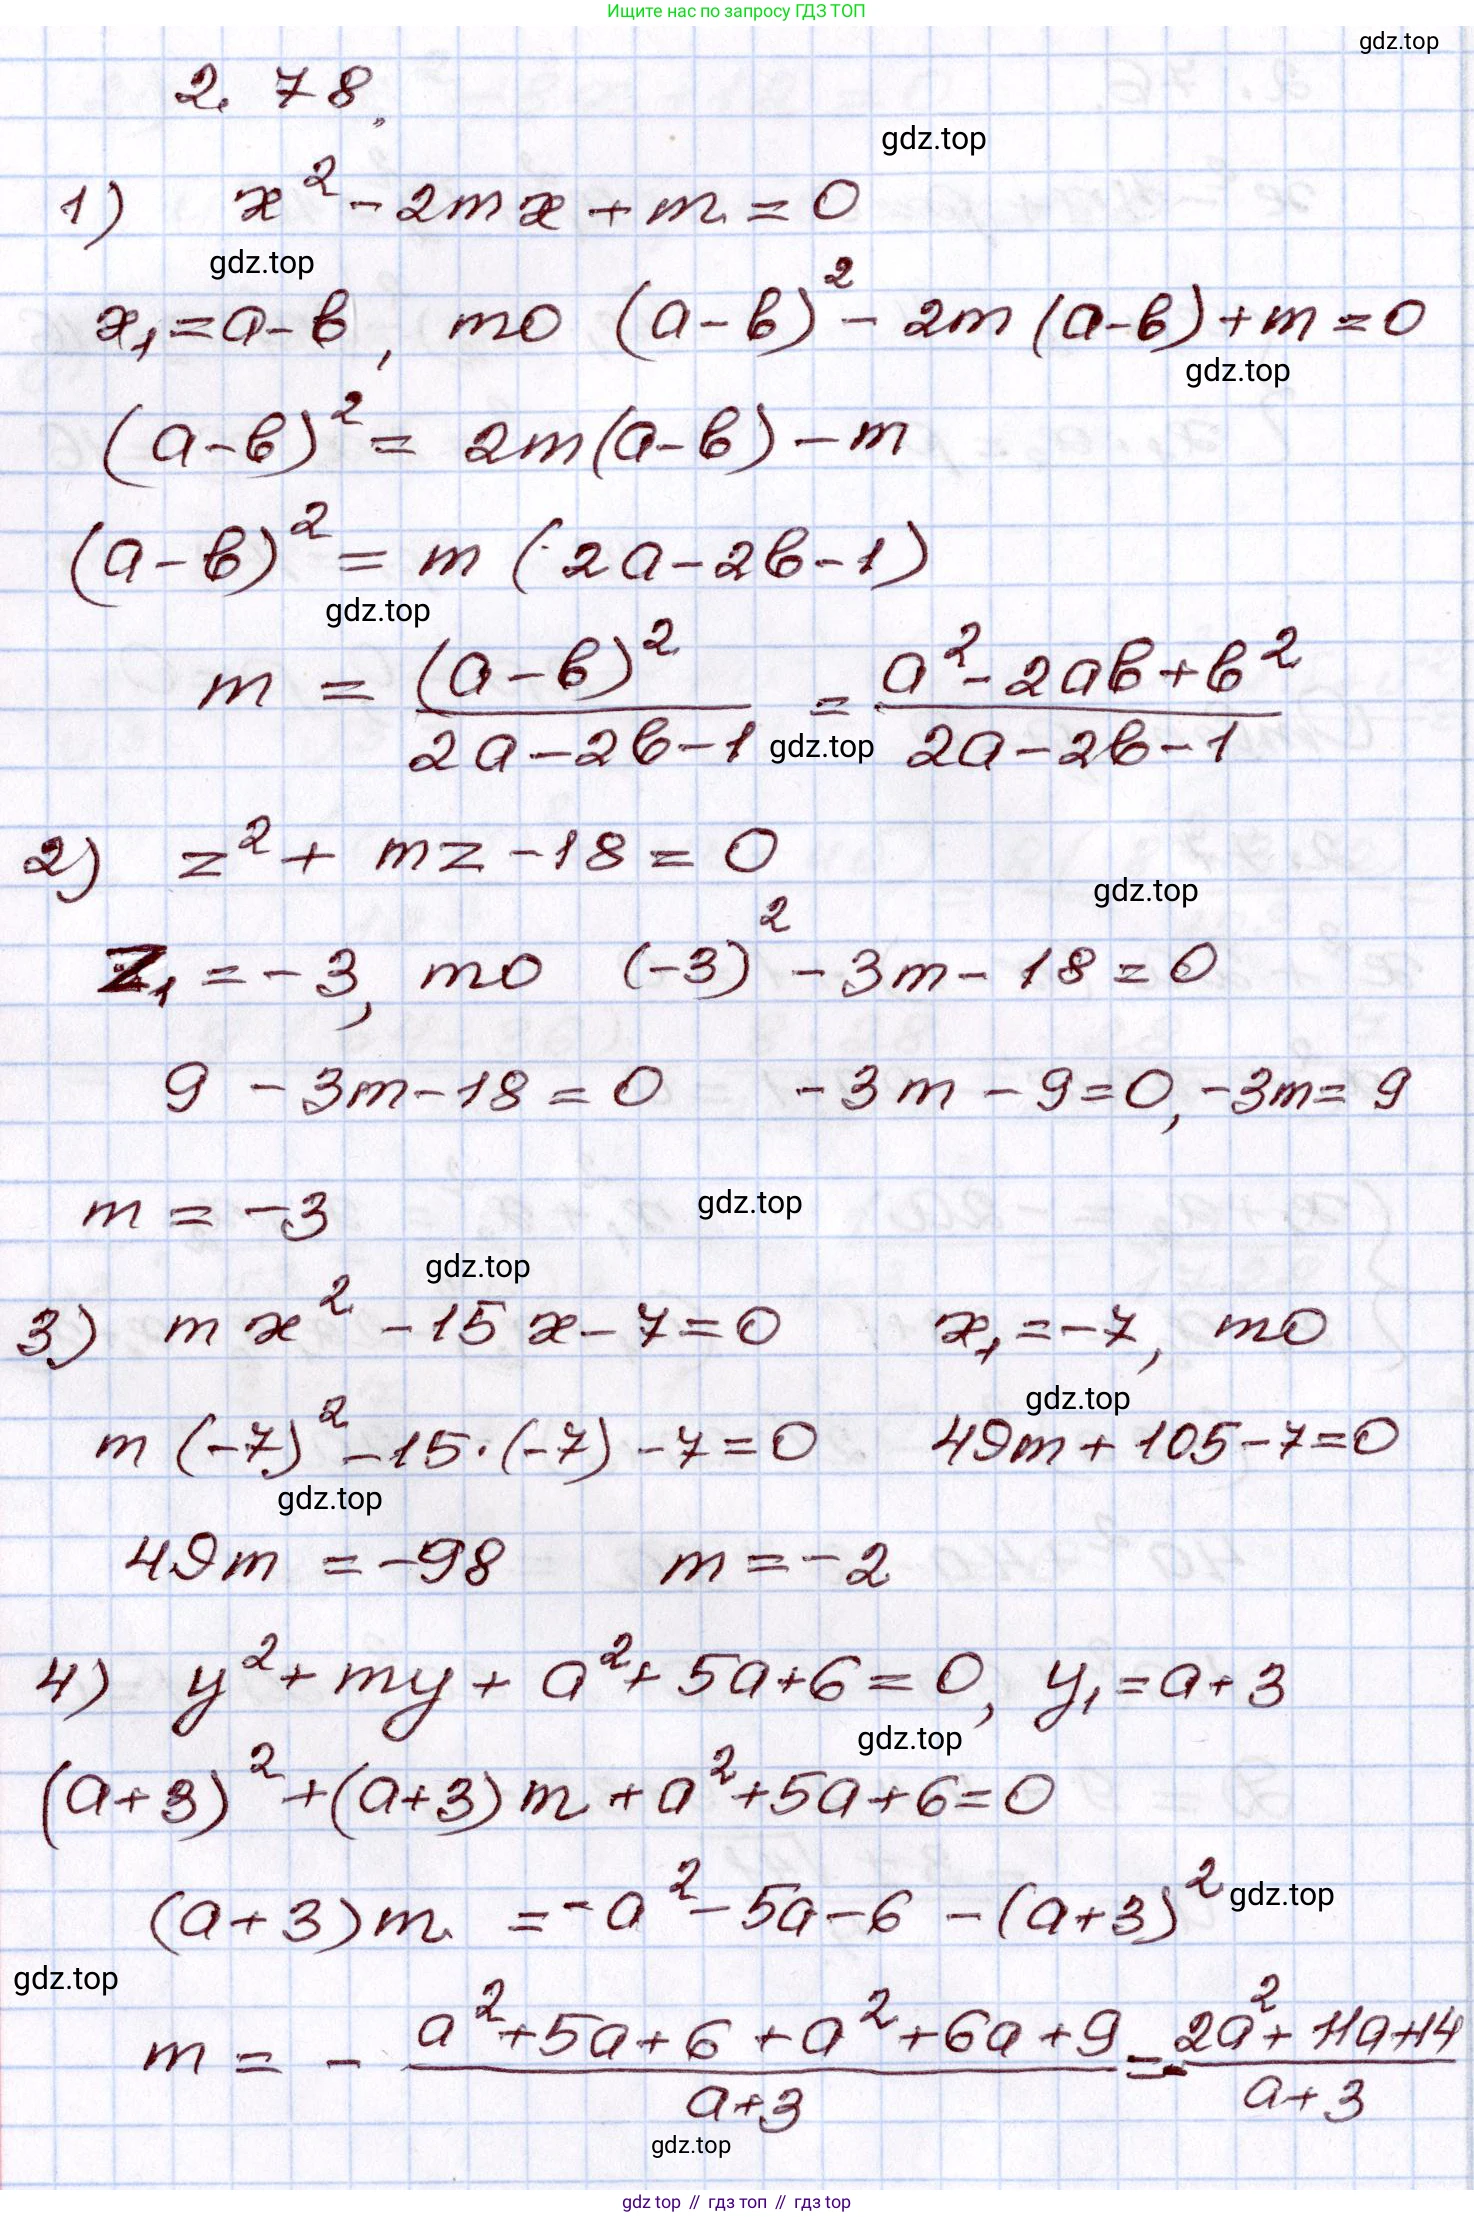 Ищите нас по запросу ГДЗ ТОП
gdz.top
2. 78.
gdz.top
1) x² - 2mx + m = 0
gdz.top
x₁ = a - b, то (a - b)² - 2m(a - b) + m = 0
gdz.top
(a - b)² = 2m(a - b) - m
(a - b)² = m(2a - 2b - 1)
gdz.top
m = (a - b)² / (2a - 2b - 1) = (a² - 2ab + b²) / (2a - 2b - 1)
gdz.top
2) z² + mz - 18 = 0
gdz.top
z₁ = -3, то (-3)² - 3m - 18 = 0
9 - 3m - 18 = 0 -3m - 9 = 0, -3m = 9
m = -3
gdz.top
gdz.top
3) mx² - 15x - 7 = 0 x₁ = -7, то
gdz.top
m(-7)² - 15·(-7) - 7 = 0 49m + 105 - 7 = 0
gdz.top
49m = -98 m = -2
4) y² + my + a² + 5a + 6 = 0, y₁ = a + 3
gdz.top
(a + 3)² + (a + 3)m + a² + 5a + 6 = 0
(a + 3)m = -a² - 5a - 6 - (a + 3)²
gdz.top
gdz.top
m = - (a² + 5a + 6 + a² + 6a + 9) / (a + 3) = - (2a² + 11a + 14) / (a + 3)
gdz.top
gdz top // гдз топ // gdz top